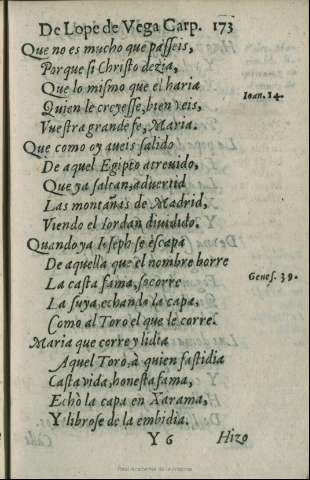 De Lope de Vega Carp. 173
Que no es mucho que passeis,
Porque si Christo dezia,
Que lo mismo que el haria
Ioan. 14.
Quien le creyesse, bien veis,
Vuestra grande fe, Maria.
Que como oy aueis salido
De aquel Egipto atreuido,
Que ya saltan, aduertid
Las montañas de Madrid,
Viendo el Iordan diuidido.
Quando ya Ioseph se escapa
De aquella que el nombre borre
Genes. 39.
La casta fama, socorre
La suya, echando la capa,
Como al Toro el que le corre.
Maria que corre y lidia
Aquel Toro, à quien fastidia
Casta vida, honesta fama,
Echò la capa en Xarama,
Y librose de la embidia.
Y 6 Hizo
Real Academia de la Historia